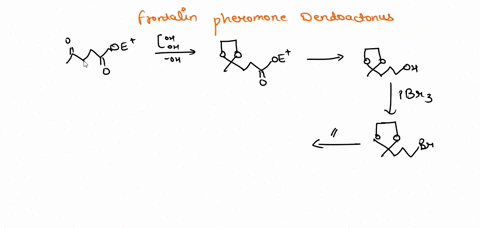 frontalin pheromone Dendoactonus
O
OE⁺
O
OH
OH
-OH
O O
OE⁺
O
O O
OH
PBr₃
O O
Br